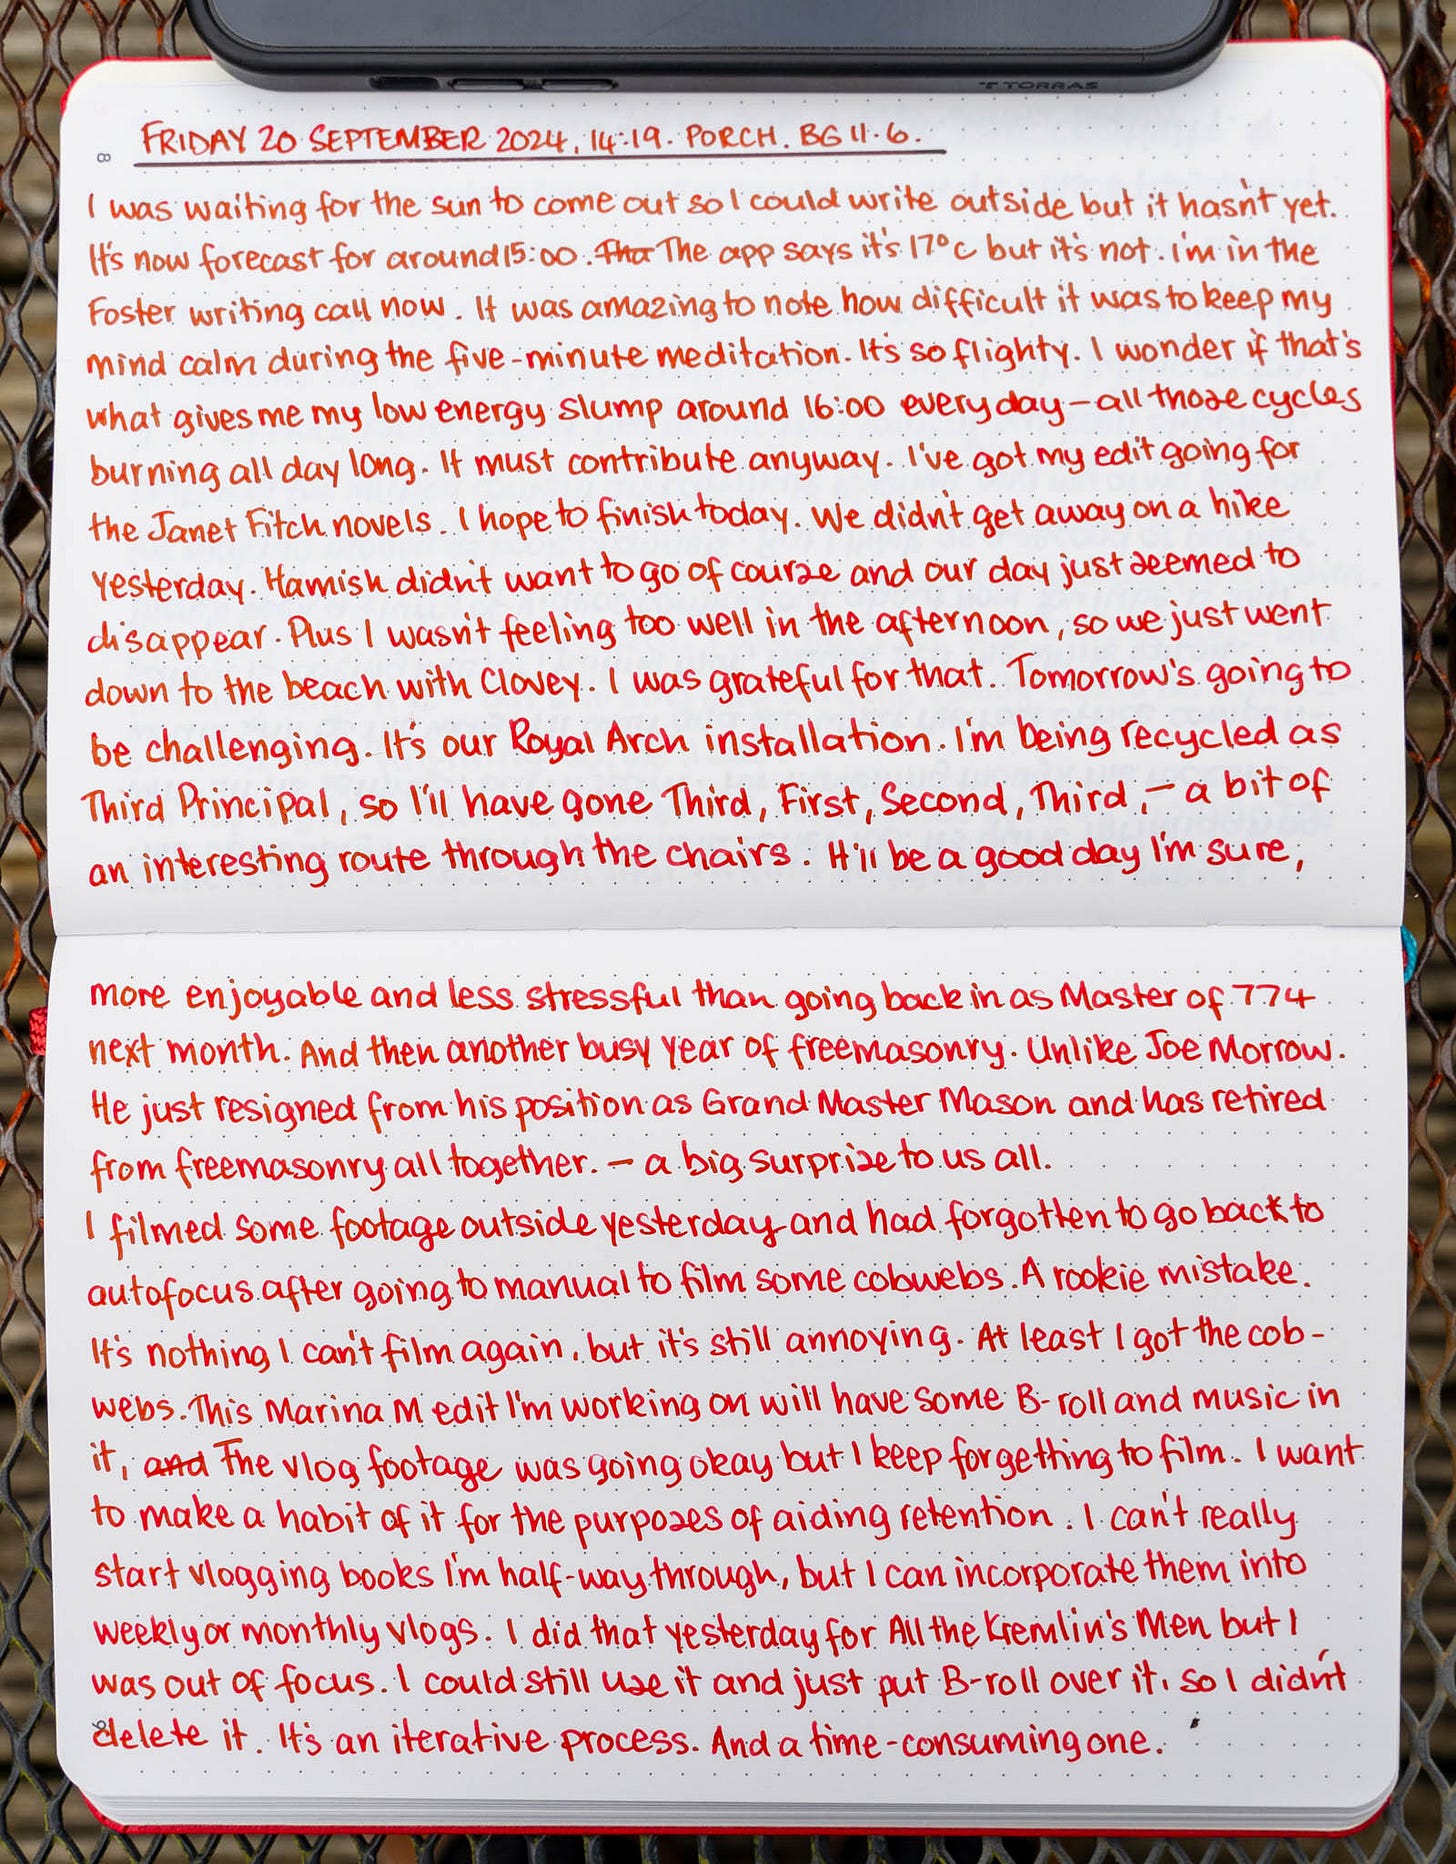 TORRAS
8
FRIDAY 20 SEPTEMBER 2024, 14:19. PORCH. BG 11.6.
I was waiting for the sun to come out so I could write outside but it hasn't yet.
It's now forecast for around 15:00. Tha The app says it's 17°C but it's not. I'm in the
Foster writing call now. It was amazing to note how difficult it was to keep my
mind calm during the five-minute meditation. It's so flighty. I wonder if that's
what gives me my low energy slump around 16:00 every day – all those cycles
burning all day long. It must contribute anyway. I've got my edit going for
the Janet Fitch novels. I hope to finish today. We didn't get away on a hike
yesterday. Hamish didn't want to go of course and our day just seemed to
disappear. Plus I wasn't feeling too well in the afternoon, so we just went
down to the beach with Clovey. I was grateful for that. Tomorrow's going to
be challenging. It's our Royal Arch installation. I'm being recycled as
Third Principal, so I'll have gone Third, First, Second, Third, – a bit of
an interesting route through the chairs. It'll be a good day I'm sure,
more enjoyable and less stressful than going back in as Master of 774
next month. And then another busy year of freemasonry. Unlike Joe Morrow.
He just resigned from his position as Grand Master Mason and has retired
from freemasonry all together. – a big surprise to us all.
I filmed some footage outside yesterday and had forgotten to go back to
autofocus after going to manual to film some cobwebs. A rookie mistake.
It's nothing I can't film again, but it's still annoying. At least I got the cob-
webs. This Marina M edit I'm working on will have some B-roll and music in
it, and The vlog footage was going okay but I keep forgetting to film. I want
to make a habit of it for the purposes of aiding retention. I can't really
start vlogging books I'm half-way through, but I can incorporate them into
weekly or monthly vlogs. I did that yesterday for All the Kremlin's Men but I
was out of focus. I could still use it and just put B-roll over it, so I didn't
delete it. It's an iterative process. And a time-consuming one.